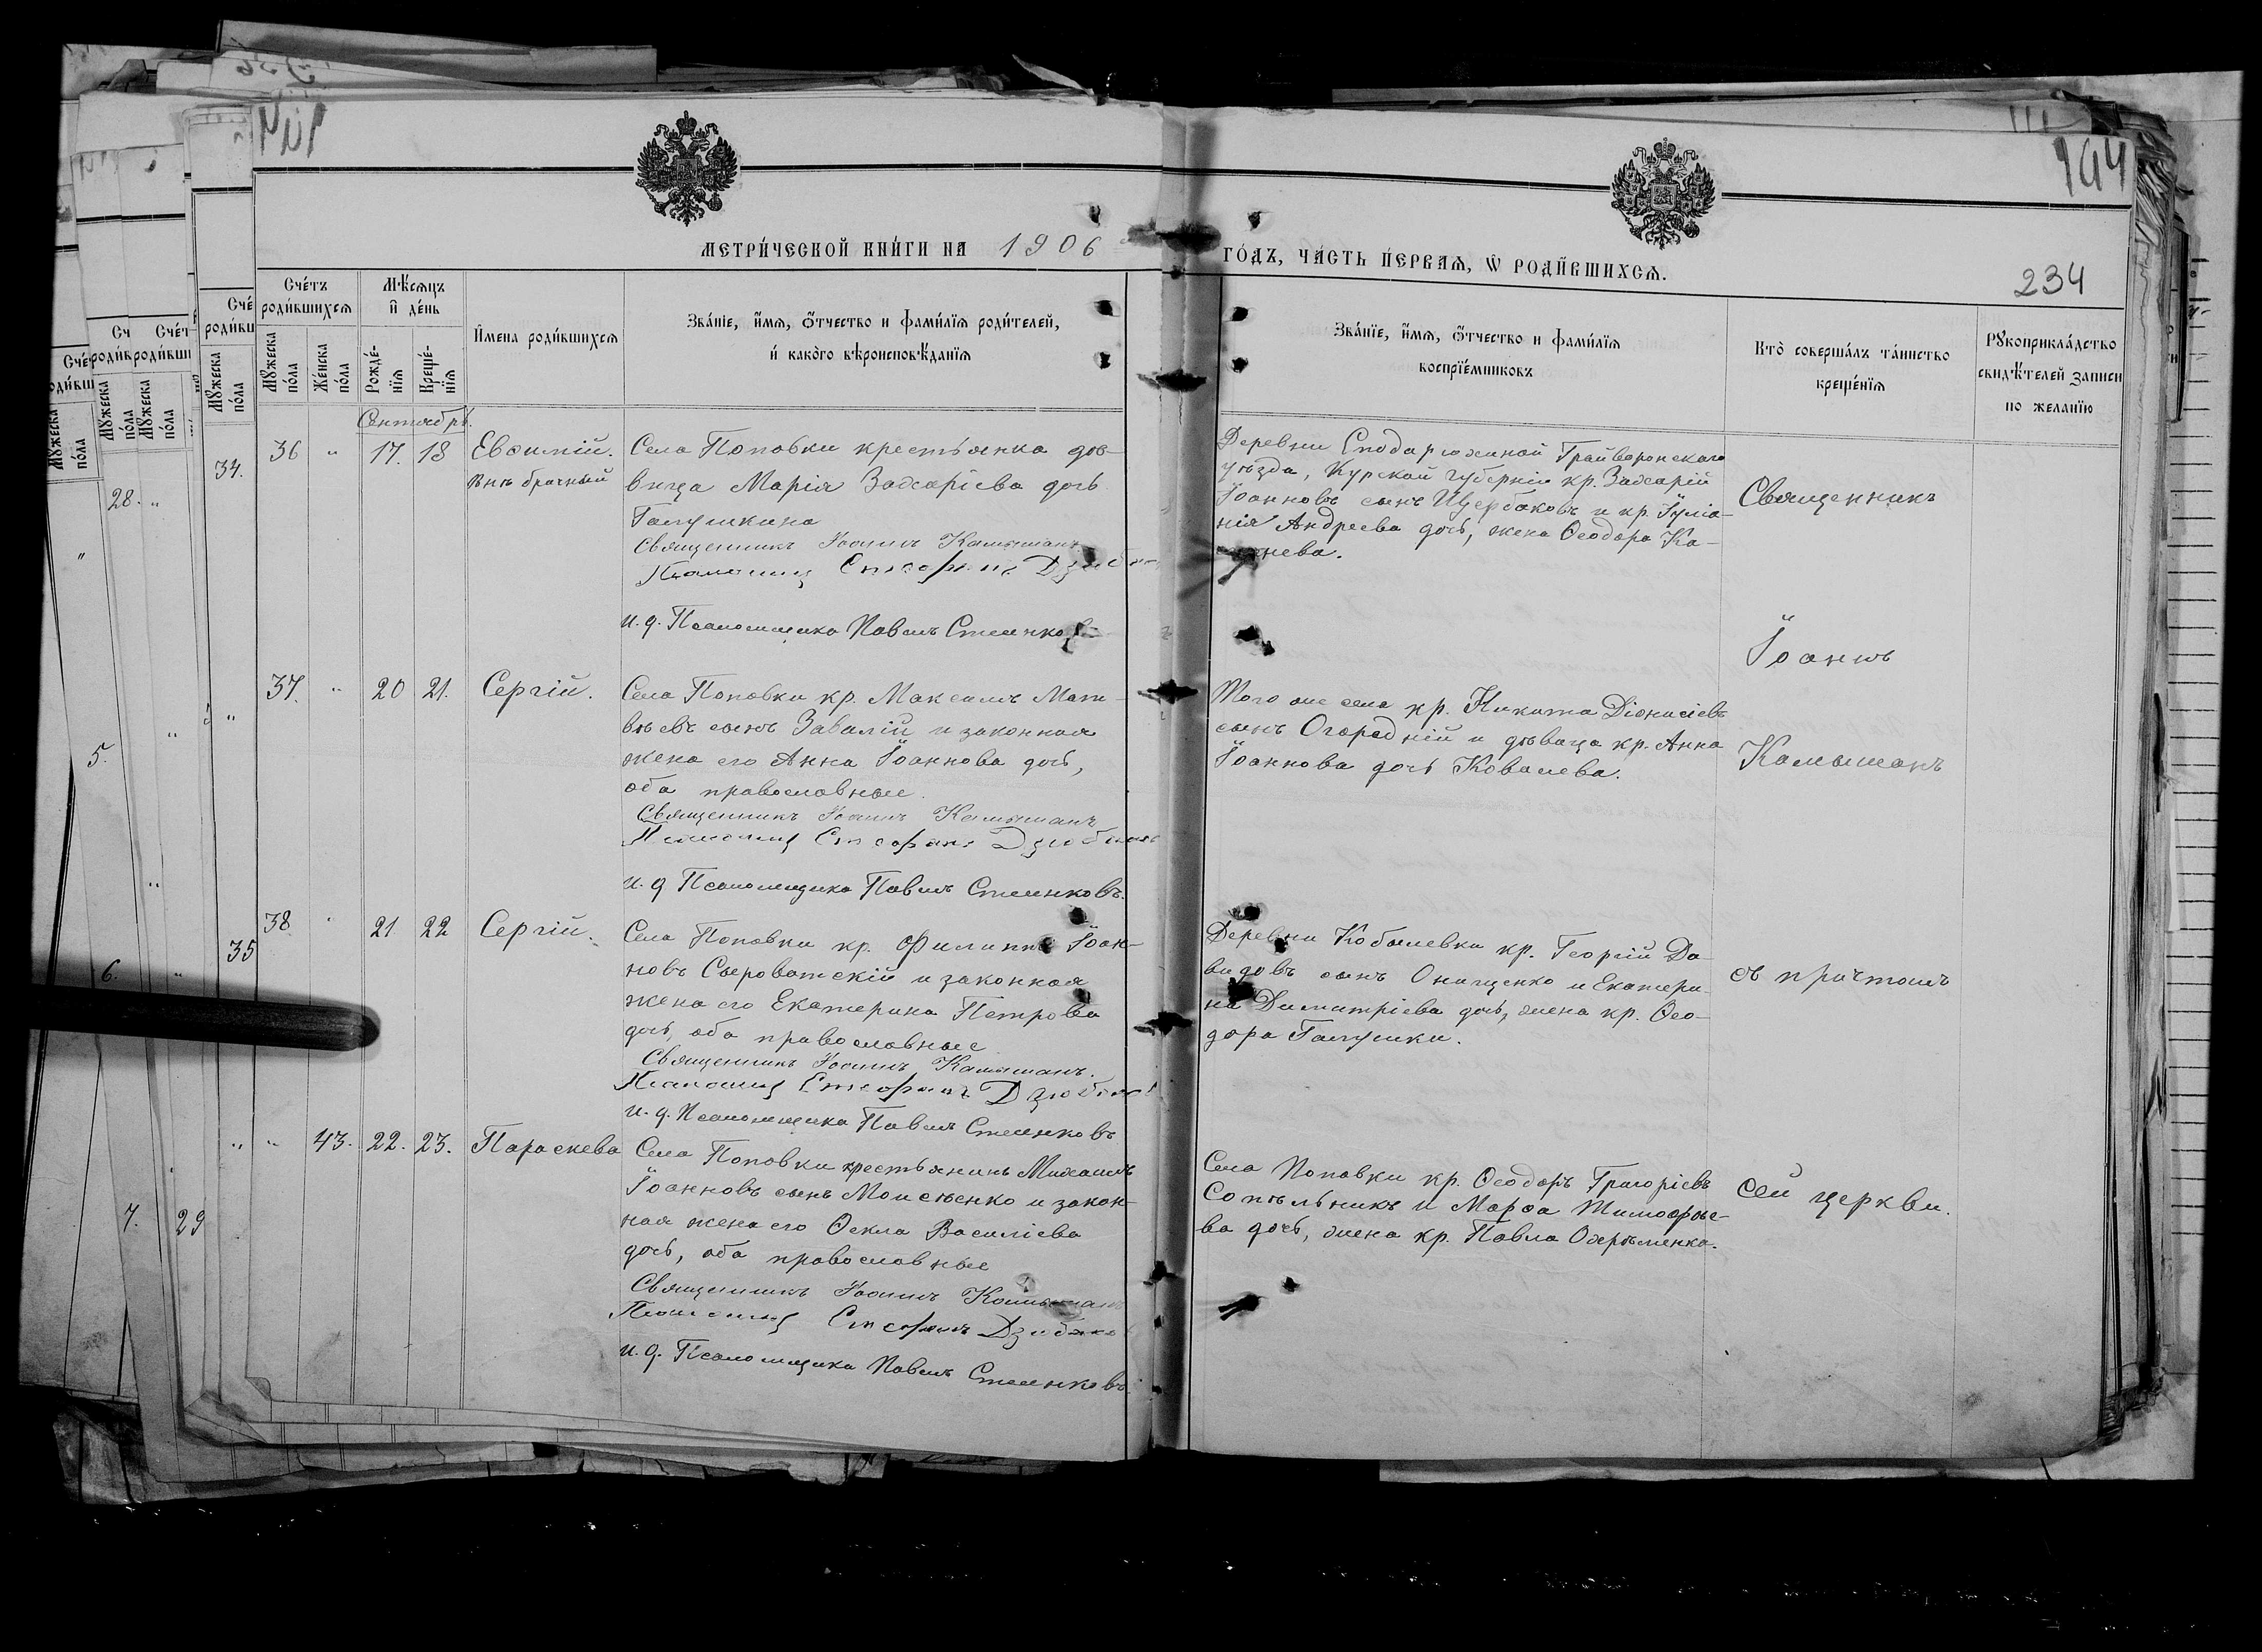 194
234
МЕТРИ́ЧЕСКОЙ КНИ́ГИ НА 1906
ГО́ДЪ, ЧА́СТЬ ПЕ́РВАѦ, Ѡ҆ РОДИ́ВШИХСѦ.
Сче́тъ роди́вшихсѧ
Мꙋ́жеска по́ла
Же́нска по́ла
Мѣ́сѧцъ и҆ де́нь
Рожде́-
нїѧ
Креще́-
нїѧ
И҆мена роди́вшихсѧ
Зва́нїе, и҆́мѧ, ѻ҆́тчество и фами́лїѧ роди́телей,
и҆ како́го вѣроисповѣ́данїѧ
Зва́нїе, и҆́мѧ, ѻ҆́тчество и фами́лїѧ
воспрїе́мниковъ
Кто̀ соверша́лъ та́инство
креще́нїѧ
Рꙋкоприкла́дство
свидѣ́телей записи
по жела́нїю
Сентябрь.
36 " 17. 18 Евѳимій.
внѣ брачный
Села Поповки крестьянка дѣ-
вица Марія Захаріева дочь
Галушкина
Священникъ Іоаннъ Камышанъ
Псаломщ Стефанъ
и. д. Псаломщика Павелъ Стеенковъ
Деревни Сподарюшиной Грайворонскаго
уѣзда, Курской губерніи кр. Захарій
Іоанновъ сынъ Щербаковъ и кр. Іуліа-
нія Андреева дочь, жена Ѳеодора Ка-
нева.
37. " 20 21. Сергій.
Села Поповки кр. Максимъ Мат-
вѣевъ сынъ Завалій и законная
жена его Анна Іоаннова дочь,
оба православные.
Священникъ Іоаннъ Камышанъ
Псаломщ Стефанъ
и. д. Псаломщика Павелъ Стеенковъ.
Того же села кр. Никита Діонисіевъ
сынъ Огородній и дѣвица кр. Анна
Іоаннова дочь Ковалева.
38 " 21 22 Сергій.
Села Поповки кр. Филиппъ Іоан-
новъ Сыроватскій и законная
жена его Екатерина Петрова
дочь, оба православные
Священникъ Іоаннъ Камышанъ.
Псаломщ Стефанъ
и. д. Псаломщика Павелъ Стеенковъ
Деревни Кобылевки кр. Георгій Да-
видовъ сынъ Онищенко и Екатери-
на Димитріева дочь, жена кр. Ѳео-
дора Галушки.
" 43. 22. 23. Параскева
Села Поповки крестьянинъ Михаилъ
Іоанновъ сынъ Моисеенко и закон-
ная жена его Ѳекла Василіева
дочь, оба православные
Священникъ Іоаннъ Камышанъ
Псаломщ Стефанъ
и. д. Псаломщика Павелъ Стеенковъ
Села Поповки кр. Ѳеодоръ Григоріевъ
Сопѣльникъ и Марѳа Тимоѳѣе-
ва дочь, жена кр. Павла Охрѣменка.
Священникъ
Іоаннъ
Камышанъ
съ причтомъ
сей церкви.
34.
35
28.
29
5.
6.
7.